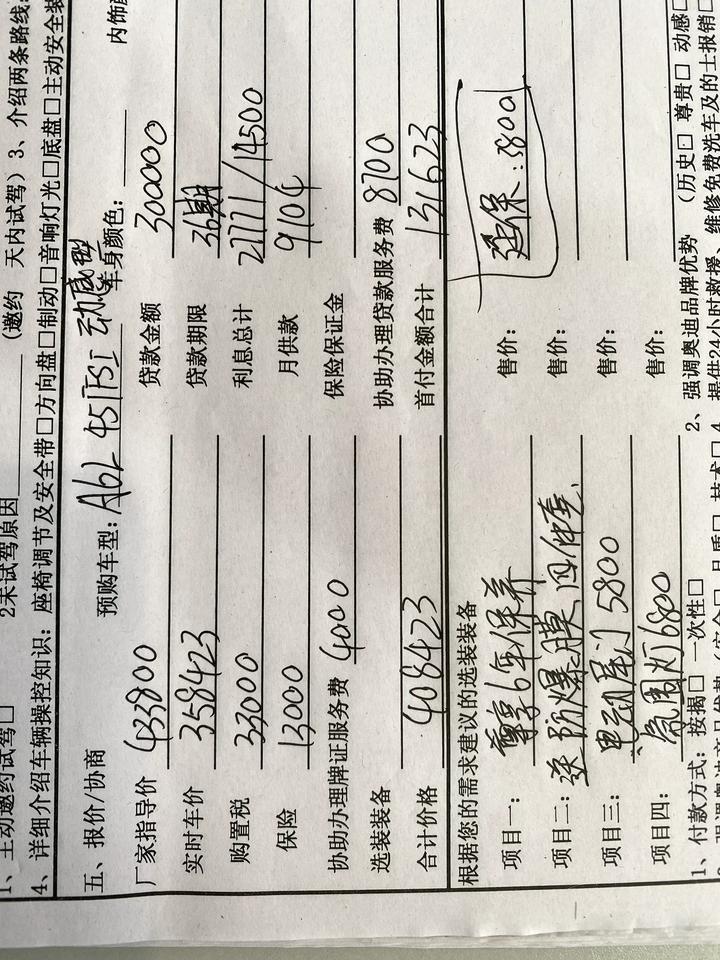 1、主动邀约试驾□ 2未试驾原因 (邀约 天内试驾) 3、介绍两条路线:
4、详细介绍车辆操控知识: 座椅调节及安全带□方向盘□制动□音响灯光□底盘□主动安全装
五、报价/协商 预购车型: A6L 45TFSI 动感型 车身颜色: 内饰颜
厂家指导价 433800 贷款金额 300000
实时车价 358423 贷款期限 36期
购置税 33000 利息总计 27777/14500
保险 13000 月供款 9104
协助办理牌证服务费 4000 保险保证金
选装装备 协助办理贷款服务费 8700
合计价格 408423 首付金额合计 131623
根据您的需求建议的选装装备
项目一: 尊享6年保养 售价: 延保:
项目二: 送防爆膜 四件套、 售价:
项目三: 电动尾门 5800 售价:
项目四: 氛围灯 6800 售价:
1、付款方式: 按揭□ 一次性□ 2、强调奥迪品牌优势 (历史□ 尊贵□ 动感□
提供24小时救援、维修免费洗车及的士报销